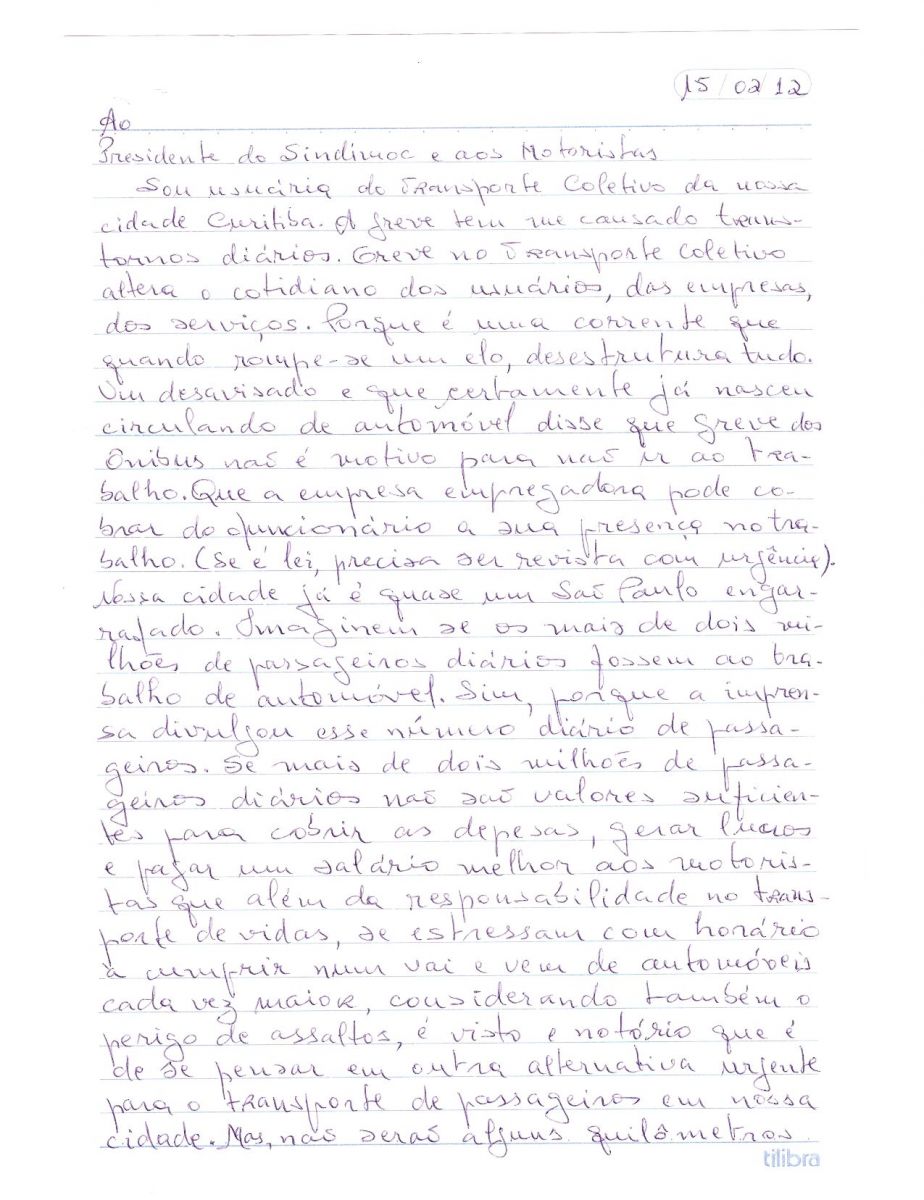 15/02/12
Ao
Presidente do Sindimoc e aos Motoristas
Sou usuária do Transporte Coletivo da nossa
cidade Curitiba. A greve tem me causado trans-
tornos diários. Greve no Transporte coletivo
altera o cotidiano dos usuários, das empresas,
dos serviços. Porque é uma corrente que
quando rompe-se um elo, desestrutura tudo.
Um desavisado e que certamente já nasceu
circulando de automóvel disse que greve dos
Ônibus não é motivo para não ir ao tra-
balho. Que a empresa empregadora pode co-
brar do funcionário a sua presença no tra-
balho. (Se é lei, precisa ser revista com urgência).
Nossa cidade já é quase um São Paulo engar-
rafado. Imaginem se os mais de dois mi-
lhões de passageiros diários fossem ao tra-
balho de automóvel. Sim, porque a impren-
sa divulgou esse número diário de passa-
geiros. Se mais de dois milhões de passa-
geiros diários não são valores suficien-
tes para cobrir as depesas, gerar lucros
e pagar um salário melhor aos motoris-
tas que além da responsabilidade no trans-
porte de vidas, se estressam com horário
à cumprir num vai e vem de automóveis
cada vez maior, considerando também o
perigo de assaltos, é visto e notório que é
de se pensar em outra alternativa urgente
para o transporte de passageiros em nossa
cidade. Mas, não serão alguns quilômetros
tilibra